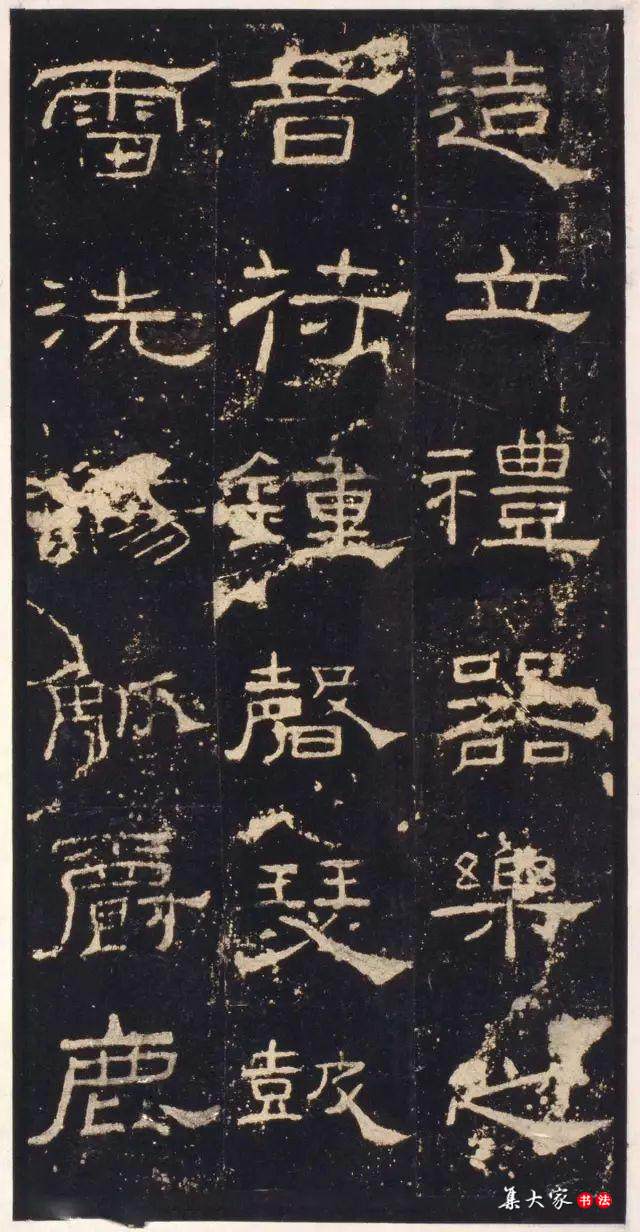 造立禮器樂之
音苻鍾磬瑟鼓
雷洗觴觚爵鹿
集大家书法